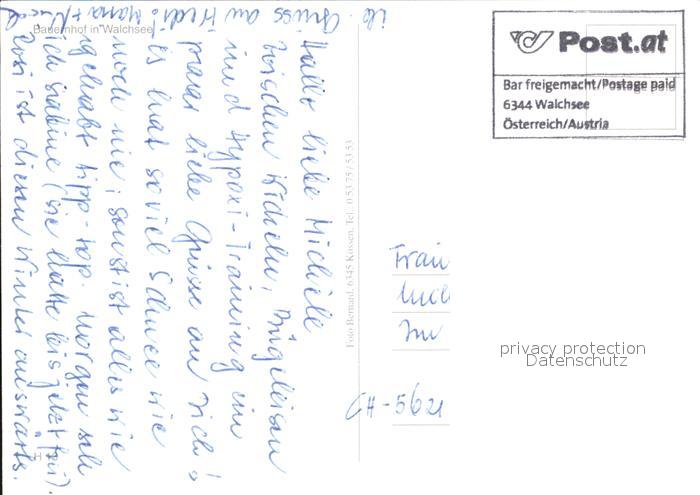 Hallo liebe Michèle
zwischen Wickeln, Bügeleisen
und Hypoxi-Training ein
paar liebe Grüsse an Dich!
es hat so viel Schnee wie
noch nie, sonst ist alles wie
gehabt tipp-top. Morgen seh
ich Sabine (sie hatte bis jetzt frei).
Rosi ist diesen Winter auswärts.
lb. Gruss an Hedi!
Bauernhof in Walchsee
Foto Bernard, 6345 Kössen, Tel. 0 53 75 / 53 53
Post.at
Bar freigemacht/Postage paid
6344 Walchsee
Österreich/Austria
Frau
Luce
Im
CH-5621
privacy protection
Datenschutz